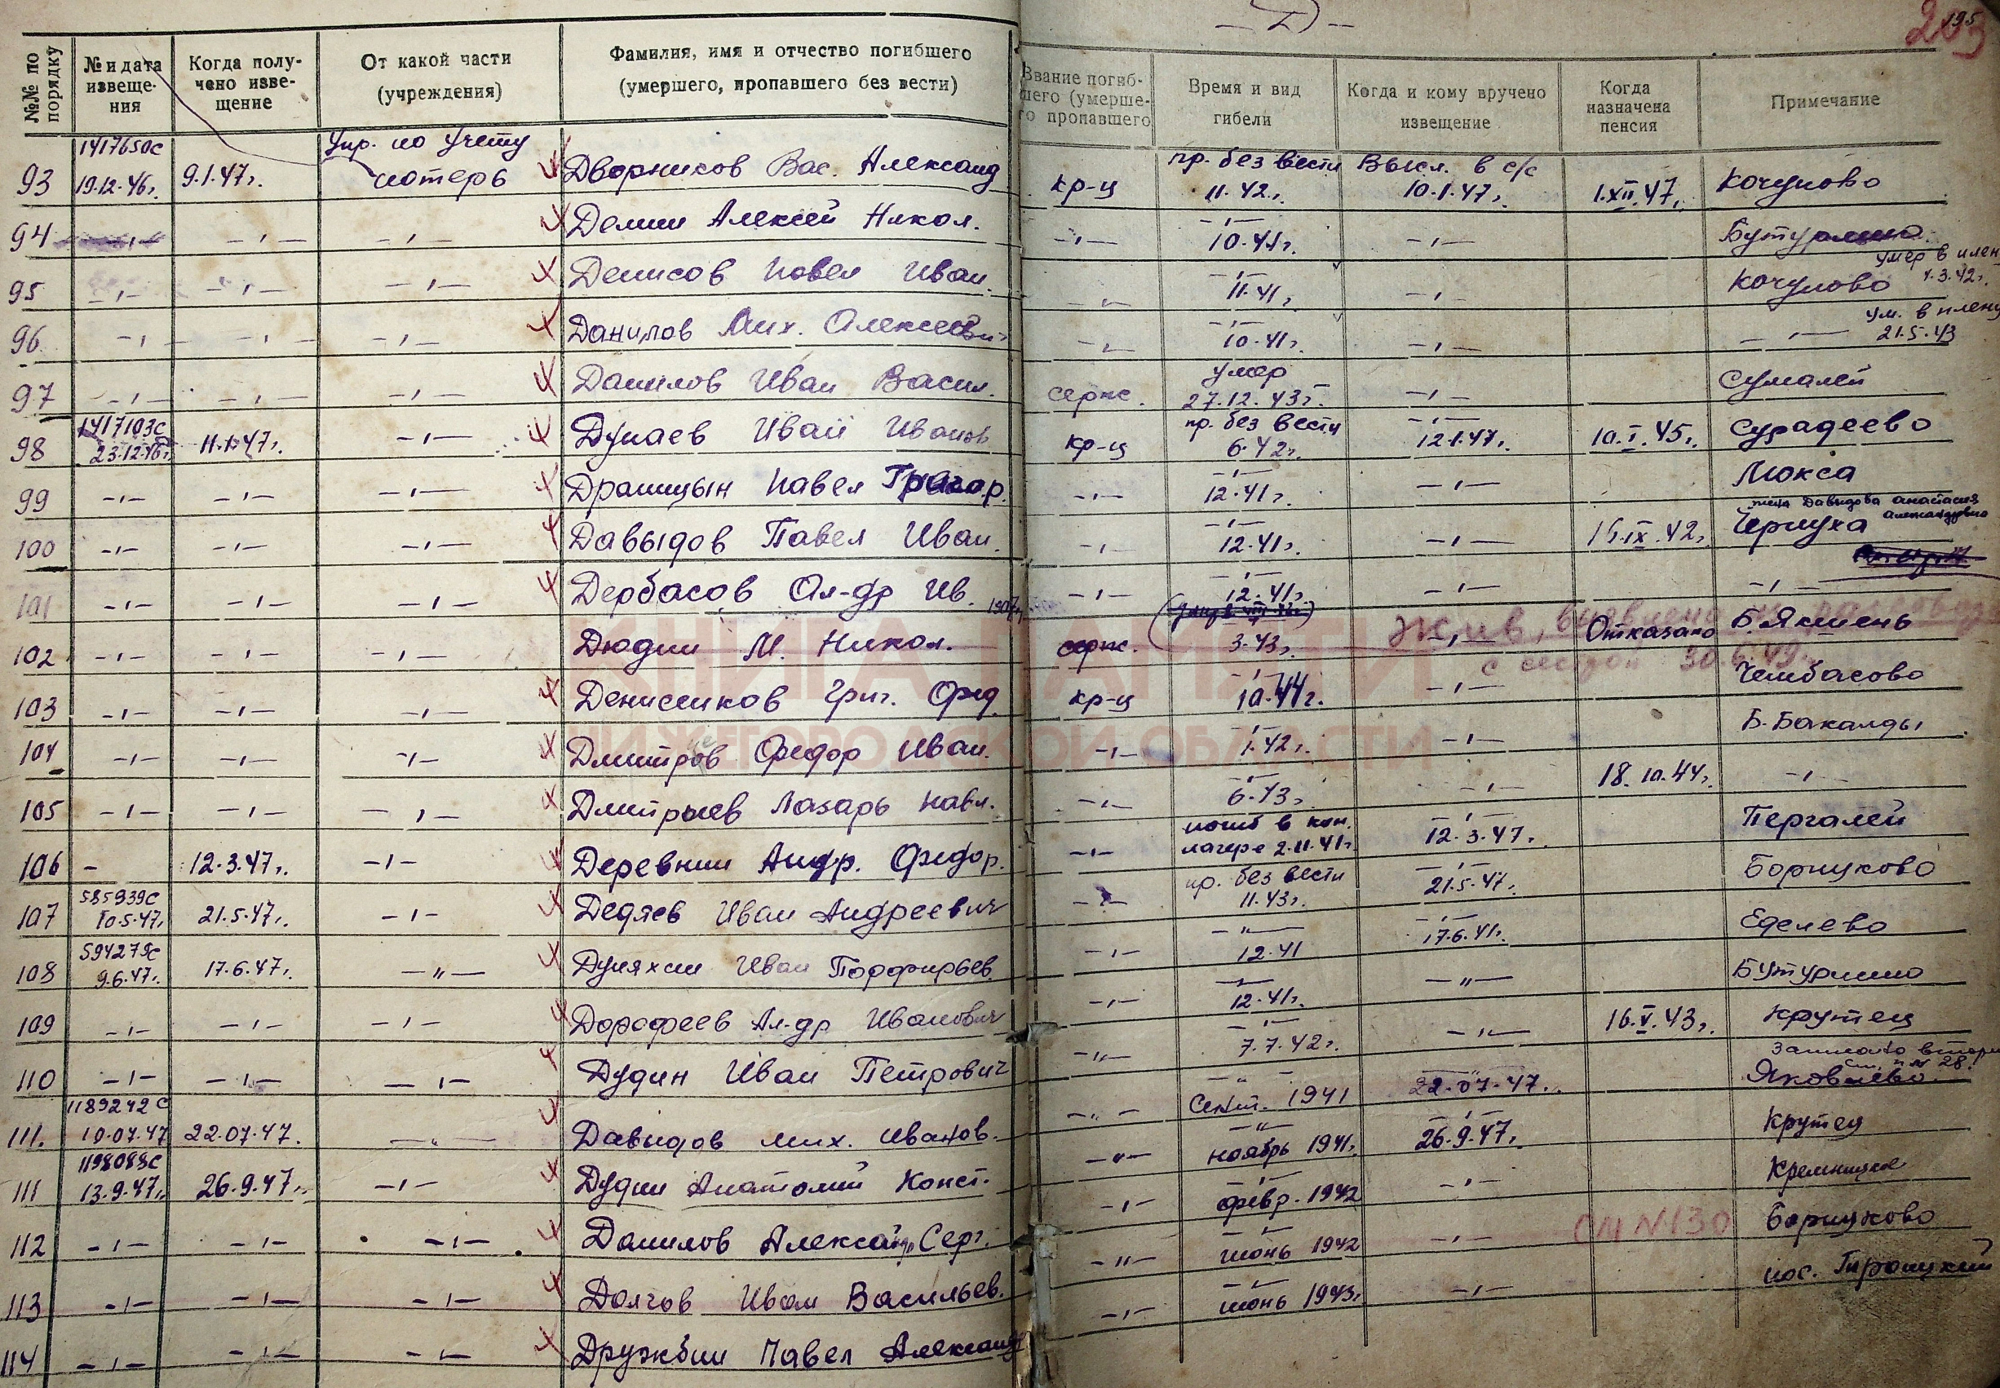 — Д —
195
203
№№ по порядку | № и дата извеще- ния | Когда полу- чено изве- щение | От какой части (учреждения) | Фамилия, имя и отчество погибшего (умершего, пропавшего без вести) | Звание погиб- шего (умерше- го пропавшего | Время и вид гибели | Когда и кому вручено извещение | Когда назначена пенсия | Примечание
93 | 1417650с 19.12.46г. | 9.1.47г. | Упр. по учету потерь | Дворников Вас. Александ | кр-ц | пр. без вести 11.42г. | Высл. в с/с 10.1.47г. | 1.XII.47г. | Кочуново
94 | —„— | —„— | —„— | Демин Алексей Никол. | —„— | —„— 10.41г. | —„— | Бутурлино
95 | —„— | —„— | —„— | Денисов Павел Иван. | —„— | —„— 11.41г. | —„— | Кочуново умер в плен 4.3.42г.
96 | —„— | —„— | —„— | Данилов Мих. Алексеевич | —„— | —„— 10.41г. | —„— | —„— ум. в плену 21.5.43
97 | —„— | —„— | —„— | Данилов Иван Васил. | серж. | умер 27.12.43г. | —„— | Сумалей
98 | 1417103с 23.12.46г. | 11.1.47г. | —„— | Дунаев Иван Иванов | кр-ц | пр. без вести 6.42г. | —„— 12.1.47г. | 10.I.45г. | Сурадеево
99 | —„— | —„— | —„— | Драницын Павел Григор. | —„— | —„— 12.41г. | —„— | Мокса
100 | —„— | —„— | —„— | Давыдов Павел Иван. | —„— | —„— 12.41г. | —„— | 16.IX.42г. | Чернуха жена Давыдова Анастасия Александровна
101 | —„— | —„— | —„— | Дербасов Ал-др Ив. 1907г. | —„— | —„— 12.41г. | —„— | —„—
102 | —„— | —„— | —„— | Дюдин М. Никол. | серж. | 3.43г. | —„— | Отказано | Б.Якшень
Жив, выявлено из разговора с сестрой 30.6.49г.
103 | —„— | —„— | —„— | Денисенков Григ. Фед. | кр-ц | —„— 10.44г. | —„— | Чембасово
104 | —„— | —„— | —„— | Дмитров Федор Иван. | —„— | —„— 1.42г. | —„— | Б-Бакалды
105 | —„— | —„— | —„— | Дмитрыев Лазарь Павл. | —„— | —„— 6.43г. | —„— | 18.10.44г. | —„—
106 | — | 12.3.47г. | —„— | Деревнин Андр. Федор. | —„— | погиб в кон. лагере 2.11.41г. | —„— 12.3.47г. | Пергалей
107 | 585939с 10.5.47г. | 21.5.47г. | —„— | Дедяев Иван Андреевич | —„— | пр. без вести 11.43г. | —„— 21.5.47г. | Борнуково
108 | 594279с 9.6.47г. | 17.6.47г. | —„— | Дуняхин Иван Порфирьев. | —„— | —„— 12.41 | —„— 17.6.41г. | Еделево
109 | —„— | —„— | —„— | Дорофеев Ал-др Иванович | —„— | —„— 12.41г. | —„— | Бутурлино
110 | —„— | —„— | —„— | Дудин Иван Петрович | —„— | —„— 7.7.42г. | —„— | 16.V.43г. | Крутец
111. | 1189242с 10.07.47 | 22.07.47. | —„— | Давыдов Мих. Иванов. | —„— | —„— Сент. 1941 | —„— 22.07.47. | Яковлево
111 | 1198088с 13.9.47г. | 26.9.47г. | —„— | Дудин Анатолий Конст. | —„— | —„— ноябрь 1941г. | —„— 26.9.47г. | Крутец
112 | —„— | —„— | —„— | Данилов Александр Серг. | —„— | —„— февр. 1942 | —„— | Кремницкое
113 | —„— | —„— | —„— | Долгов Иван Васильев. | —„— | —„— июнь 1942 | —„— | См №130 | Борнуково
114 | —„— | —„— | —„— | Дружбин Павел Александр | —„— | —„— июнь 1943г. | —„— | пос. Троицкий
КНИГА ПАМЯТИ
НИЖЕГОРОДСКОЙ ОБЛАСТИ